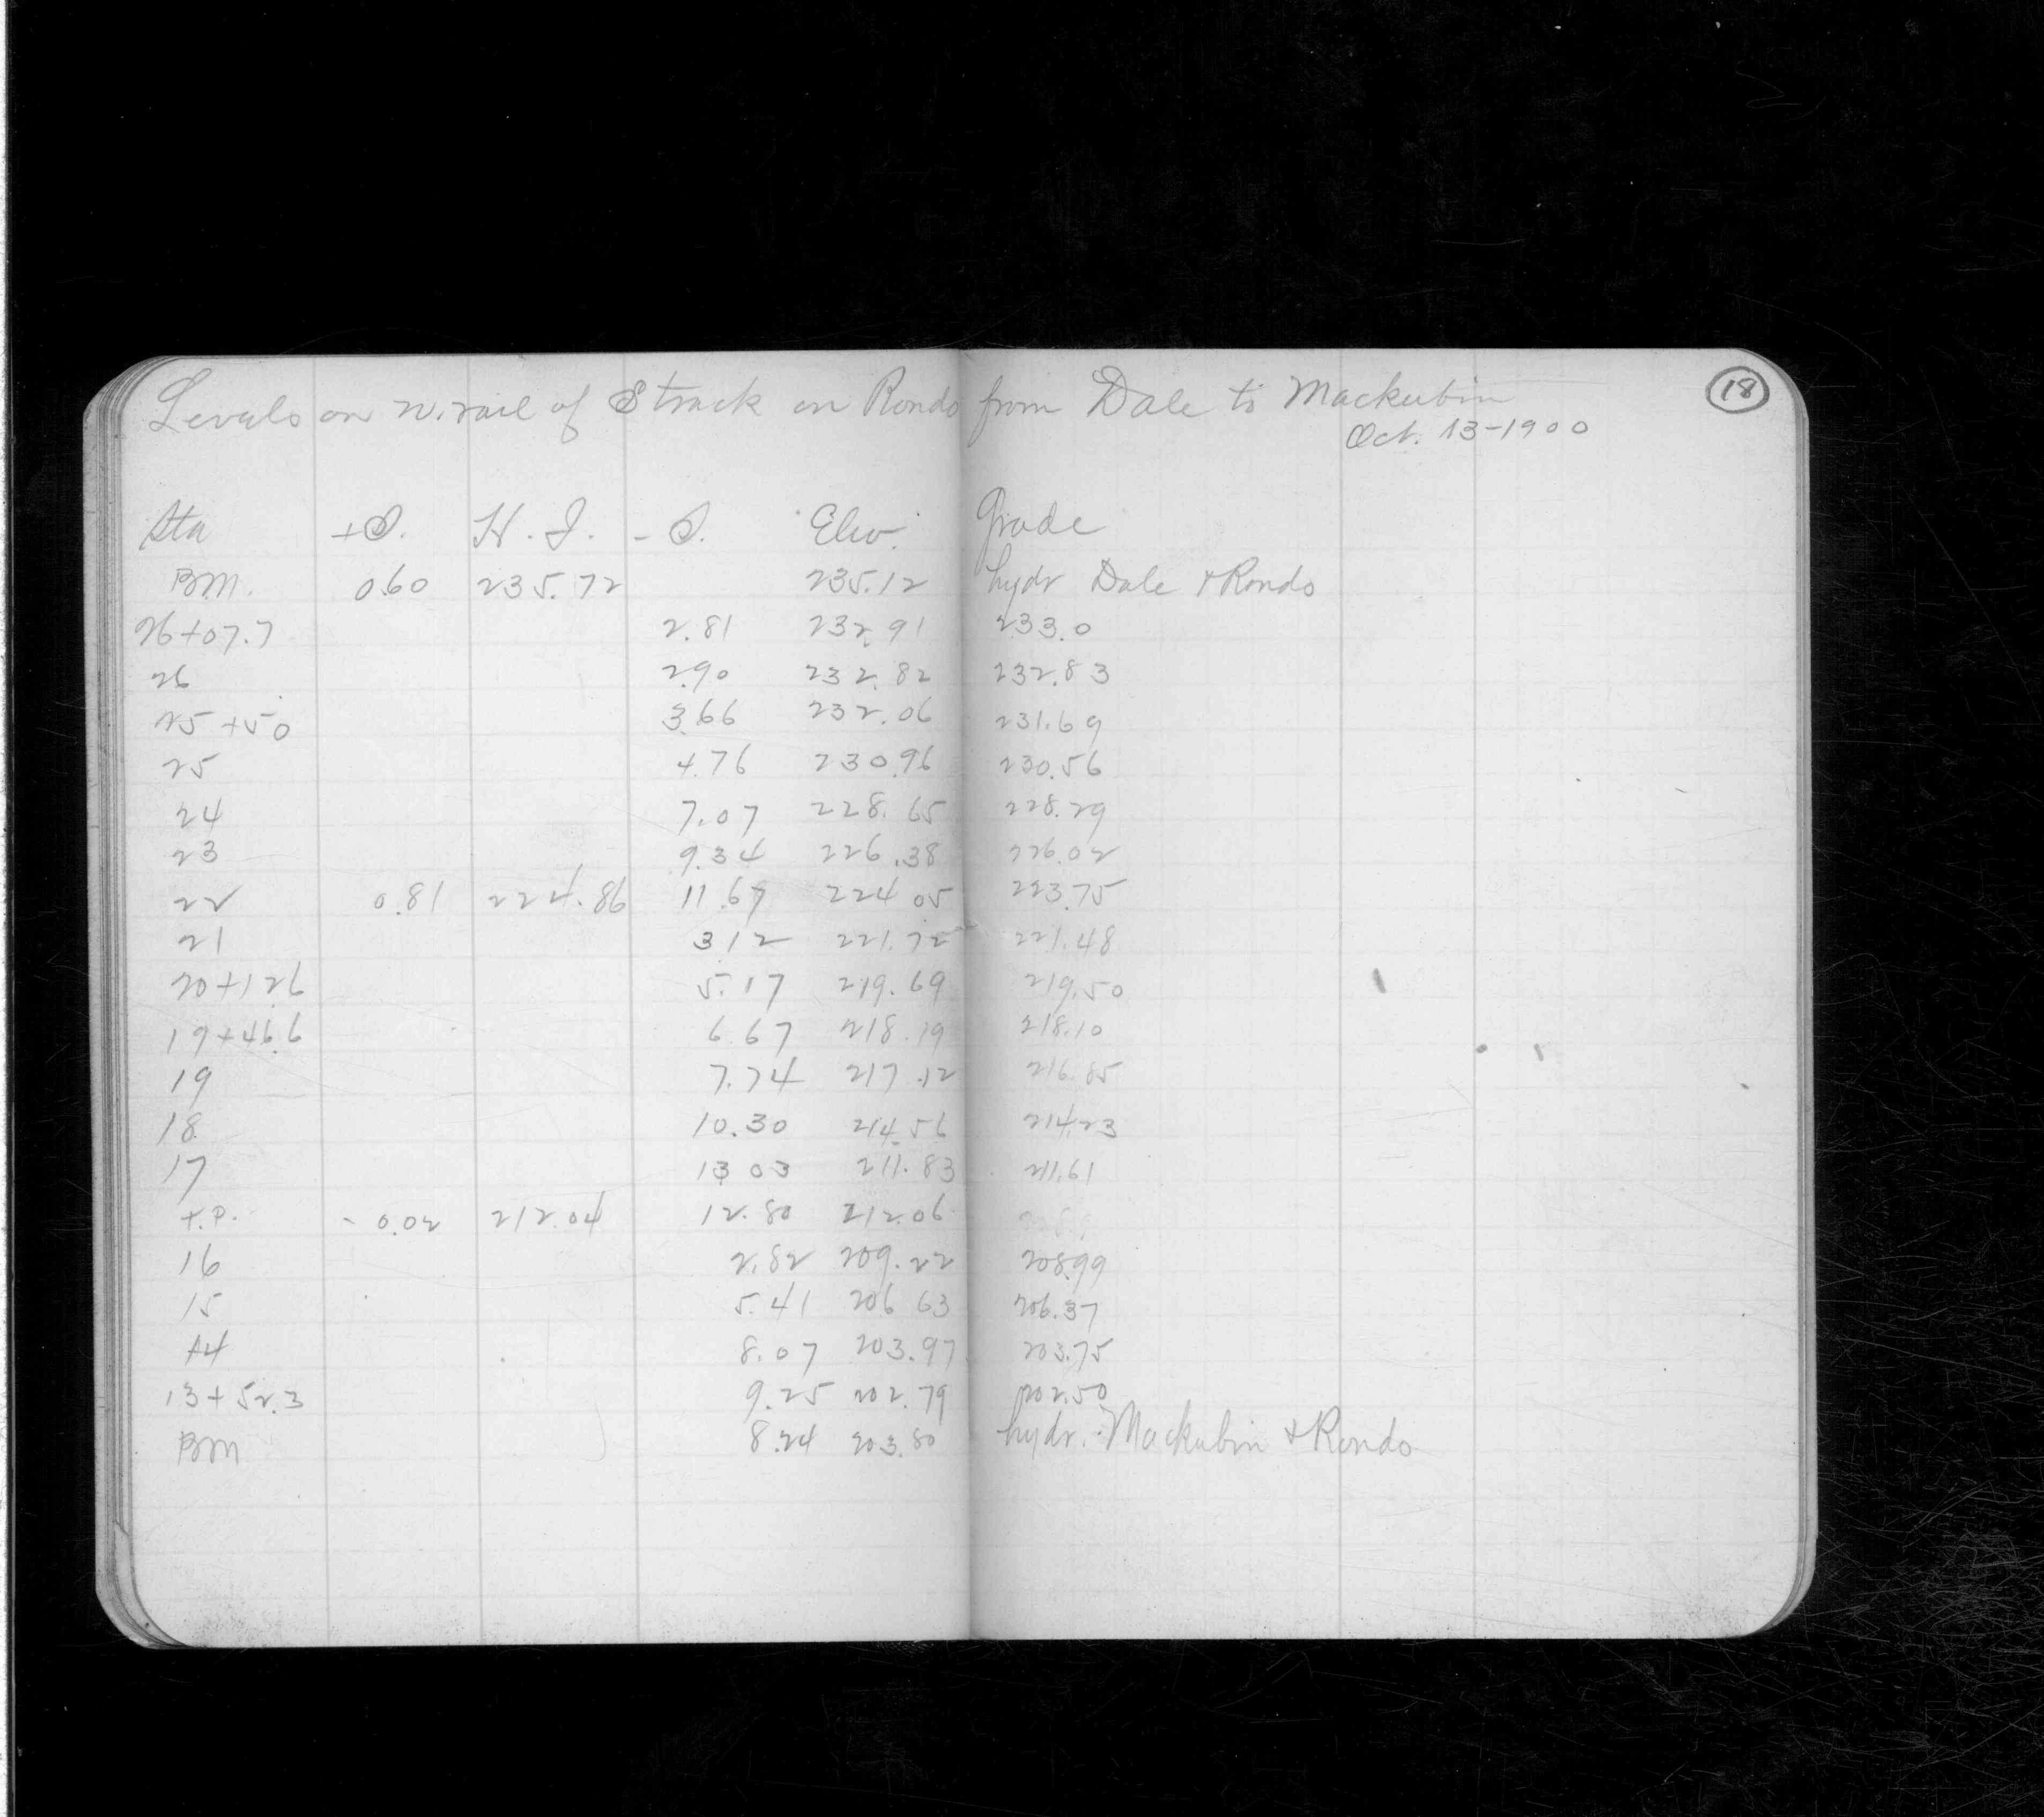 18
Levels on N. rail of S track on Rondo from Dale to Mackubin
Oct. 13-1900
Sta +S. H.I. -S. Elev. Grade
B.M. 0.60 235.72 235.12 hydr Dale & Rondo
26+07.7 2.81 232.91 233.0
26 2.90 232.82 232.83
25+50 3.66 232.06 231.69
25 4.76 230.96 230.56
24 7.07 228.65 228.29
23 9.34 226.38 226.02
22 0.81 224.86 11.67 224.05 223.75
21 3.12 221.72 221.48
20+12.6 5.17 219.69 219.50
19+46.6 6.67 218.19 218.10
19 7.74 217.12 216.85
18 10.30 214.56 214.23
17 13.03 211.83 211.61
T.P. -0.02 212.04 12.80 212.06
16 2.82 209.22 208.99
15 5.41 206.63 206.37
14 8.07 203.97 203.75
13+52.3 9.25 202.79 202.50
BM 8.24 203.80 hydr. Mackubin & Rondo